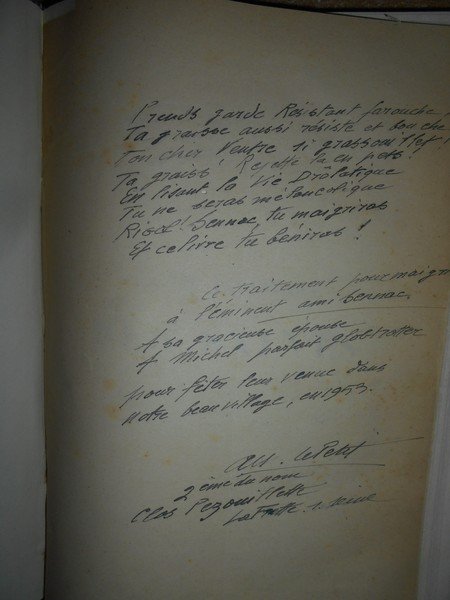 Prends garde Résistant farouche,
Ta graisse aussi résiste et bouche
Ton cher Ventre si grassouillet,
Ta graiss' Rejette la en pets!
En lisant la Vie Drôlatique
Tu ne seras mélancolique
Rigol' Sennac, tu maigriras
Et ce livre tu béniras!
Ce traitement pour maigri
à l'éminent ami Sennac,
A sa gracieuse épouse
A Michel parfait globtrotter
pour fêter leur venue dans
notre beau village, en 1953.
LePetit
2ème du nom
Clos Pegouillette
La Frette s. Seine